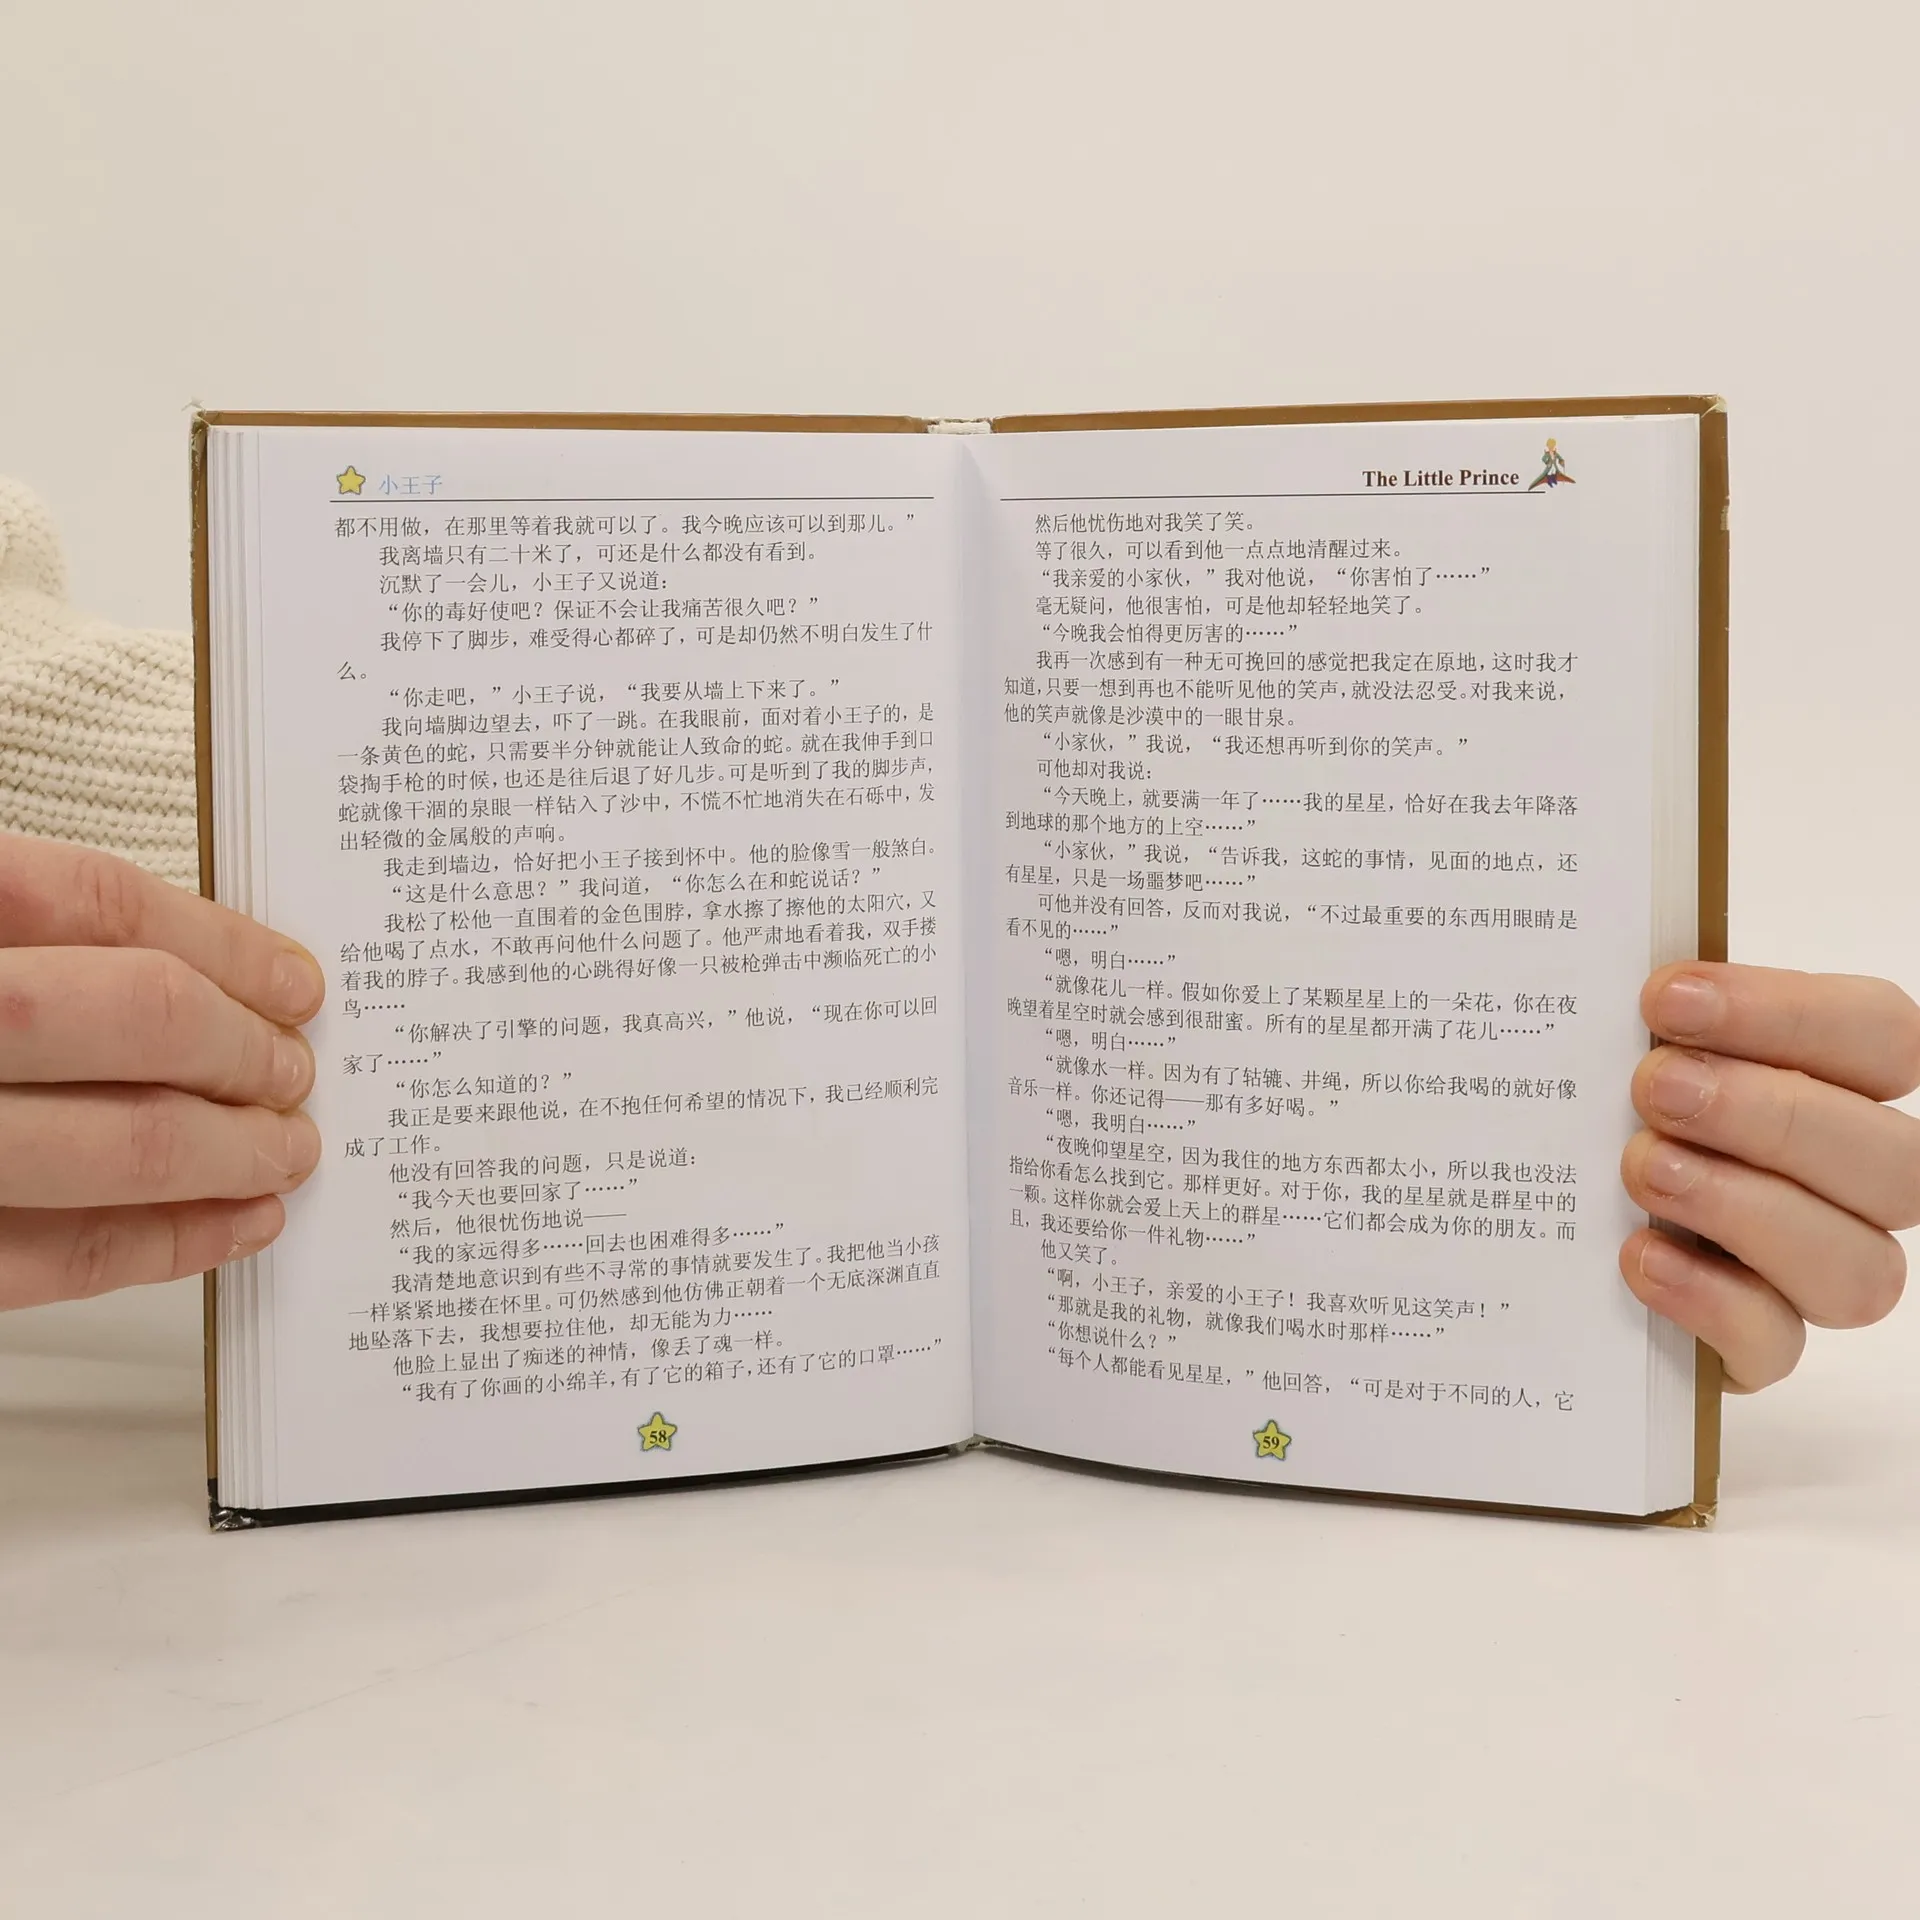 小王子
都不用做，在那里等着我就可以了。我今晚应该可以到那儿。”
我离墙只有二十米了，可还是什么都没有看到。
沉默了一会儿，小王子又说道：
“你的毒好使吧？保证不会让我痛苦很久吧？”
我停下了脚步，难受得心都碎了，可是却仍然不明白发生了什
么。
“你走吧，”小王子说，“我要从墙上下来了。”
我向墙脚边望去，吓了一跳。在我眼前，面对着小王子的，是
一条黄色的蛇，只需要半分钟就能让人致命的蛇。就在我伸手到口
袋掏手枪的时候，也还是往后退了好几步。可是听到了我的脚步声，
蛇就像干涸的泉眼一样钻入了沙中，不慌不忙地消失在石砾中，发
出轻微的金属般的声响。
我走到墙边，恰好把小王子接到怀中。他的脸像雪一般煞白。
“这是什么意思？”我问道，“你怎么在和蛇说话？”
我松了松他一直围着的金色围脖，拿水擦了擦他的太阳穴，又
给他喝了点水，不敢再问他什么问题了。他严肃地看着我，双手搂
着我的脖子。我感到他的心跳得好像一只被枪弹击中濒临死亡的小
鸟……
“你解决了引擎的问题，我真高兴，”他说，“现在你可以回
家了……”
“你怎么知道的？”
我正是要来跟他说，在不抱任何希望的情况下，我已经顺利完
成了工作。
他没有回答我的问题，只是说道：
“我今天也要回家了……”
然后，他很忧伤地说——
“我的家远得多……回去也困难得多……”
我清楚地意识到有些不寻常的事情就要发生了。我把他当小孩
一样紧紧地搂在怀里。可仍然感到他仿佛正朝着一个无底深渊直直
地坠落下去，我想要拉住他，却无能为力……
他脸上显出了痴迷的神情，像丢了魂一样。
“我有了你画的小绵羊，有了它的箱子，还有了它的口罩……”
58
The Little Prince
然后他忧伤地对我笑了笑。
等了很久，可以看到他一点点地清醒过来。
“我亲爱的小家伙，”我对他说，“你害怕了……”
毫无疑问，他很害怕，可是他却轻轻地笑了。
“今晚我会怕得更厉害的……”
我再一次感到有一种无可挽回的感觉把我定在原地，这时我才
知道，只要一想到再也不能听见他的笑声，就没法忍受。对我来说，
他的笑声就像是沙漠中的一眼甘泉。
“小家伙，”我说，“我还想再听到你的笑声。”
可他却对我说：
“今天晚上，就要满一年了……我的星星，恰好在我去年降落
到地球的那个地方的上空……”
“小家伙，”我说，“告诉我，这蛇的事情，见面的地点，还
有星星，只是一场噩梦吧……”
可他并没有回答，反而对我说，“不过最重要的东西用眼睛是
看不见的……”
“嗯，明白……”
“就像花儿一样。假如你爱上了某颗星星上的一朵花，你在夜
晚望着星空时就会感到很甜蜜。所有的星星都开满了花儿……”
“嗯，明白……”
“就像水一样。因为有了轱辘、井绳，所以你给我喝的就好像
音乐一样。你还记得——那有多好喝。”
“嗯，我明白……”
“夜晚仰望星空，因为我住的地方东西都太小，所以我也没法
指给你看怎么找到它。那样更好。对于你，我的星星就是群星中的
一颗。这样你就会爱上天上的群星……它们都会成为你的朋友。而
且，我还要给你一件礼物……”
他又笑了。
“啊，小王子，亲爱的小王子！我喜欢听见这笑声！”
“那就是我的礼物，就像我们喝水时那样……”
“你想说什么？”
“每个人都能看见星星，”他回答，“可是对于不同的人，它
59